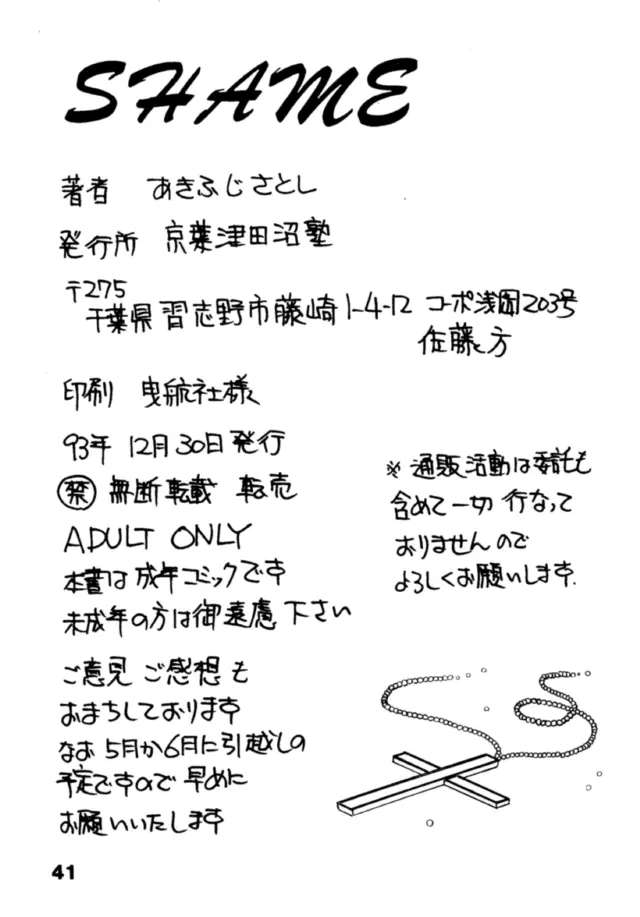 SHAME
著者 あきふじさとし
発行所 京葉津田沼塾
〒275
千葉県習志野市藤崎1-4-12 コーポ浅岡203号
佐藤方
印刷 曳航社様
93年 12月30日発行
禁 無断転載 転売
ADULT ONLY
本書は成年コミックです
未成年の方は御遠慮下さい
ご意見 ご感想も
おまちしております
なお 5月か6月に引越しの
予定ですので 早めに
お願いいたします
※ 通販活動は委託も
含めて一切 行なって
おりませんので
よろしくお願いします.
41